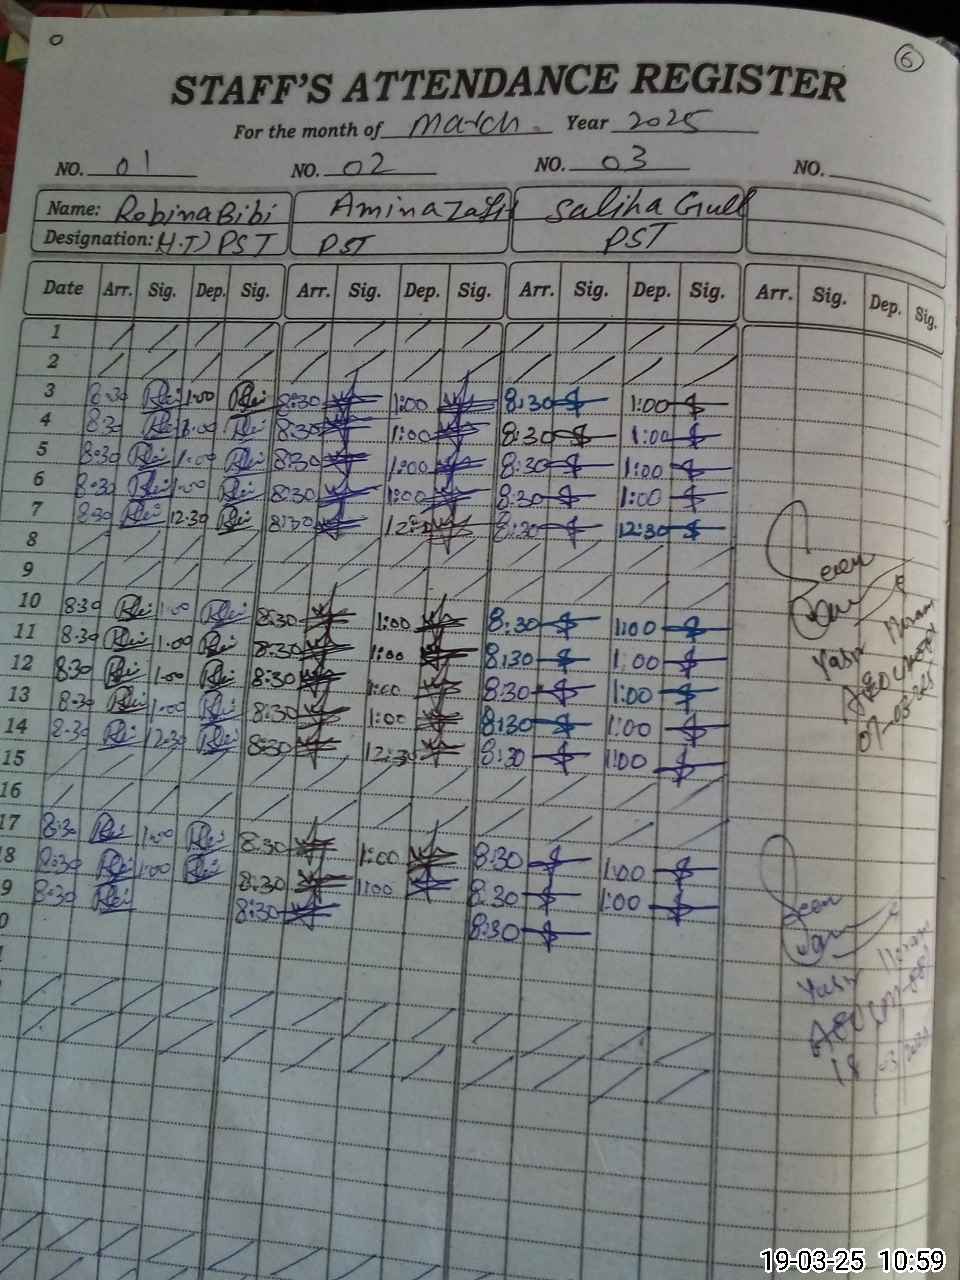 6
STAFF'S ATTENDANCE REGISTER
For the month of March. Year 2025
NO. 01 NO. 02 NO. 03 NO.
Name: Robina Bibi Amina Saliha Gull
Designation: H.T) PST PST PST
Date Arr. Sig. Dep. Sig. Arr. Sig. Dep. Sig. Arr. Sig. Dep. Sig. Arr. Sig. Dep. Sig.
1
2
3 8:30 1:00 8:30 1:00 8:30 1:00
4 8:30 1:00 8:30 1:00 8:30 1:00
5 8:30 1:00 8:30 1:00 8:30 1:00
6 8:30 1:00 8:30 1:00 8:30 1:00
7 8:30 12:30 8:30 8:30 12:30
8
9
10 8:30 1:00 8:30 1:00 8:30 1:00
11 8:30 1:00 8:30 1:00 8:30 1:00
12 8:30 1:00 8:30 1:00 8:30 1:00
13 8:30 1:00 8:30 1:00 8:30 1:00
14 8:30 12:30 8:30 12:30 8:30 1:00
15
16
17 8:30 1:00 8:30 1:00 8:30 1:00
8 8:30 1:00 8:30 1:00 8:30 1:00
9 8:30 8:30 8:30
0
Seen
Yasir
Seen
Yasir
19-03-25 10:59